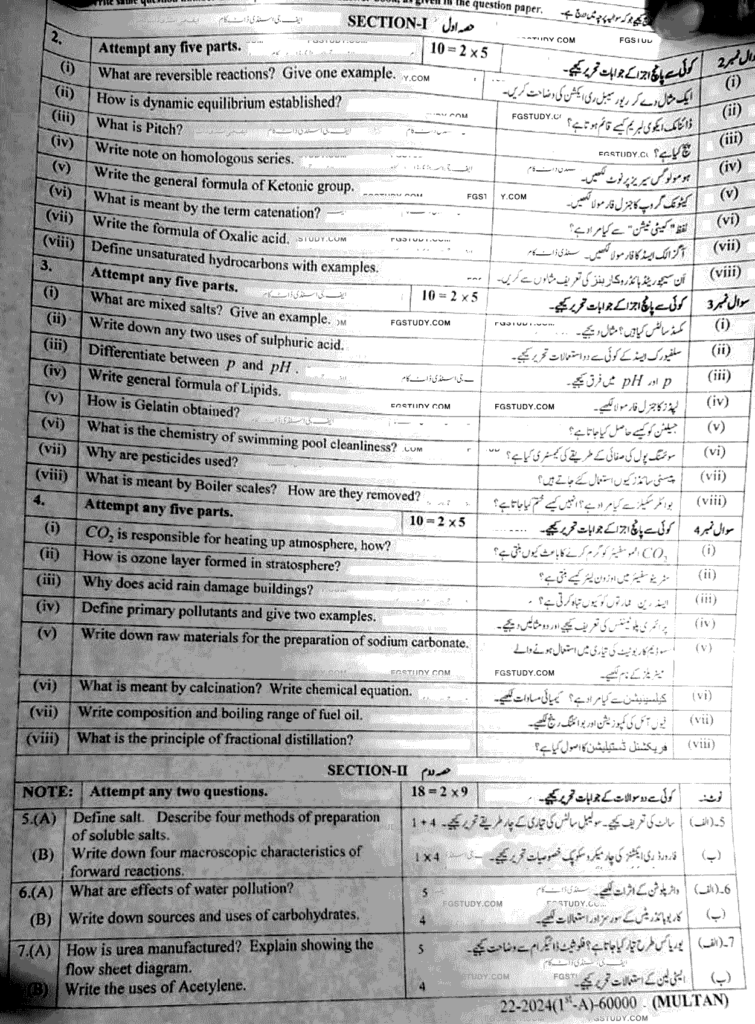 question paper.
SECTION-I حصہ اول
2. Attempt any five parts. 10 = 2 x 5 کوئی سے پانچ اجزا کے جوابات تحریر کیجیے۔ سوال نمبر 2
(i) What are reversible reactions? Give one example. ایک مثال دے کر ریورسیبل ری ایکشن کی وضاحت کریں۔ (i)
(ii) How is dynamic equilibrium established? ڈائنامک ایکوی لبریم کیسے قائم ہوتا ہے؟ (ii)
(iii) What is Pitch? پچ کیا ہے؟ (iii)
(iv) Write note on homologous series. ہومولوگس سیریز پر نوٹ لکھیں۔ (iv)
(v) Write the general formula of Ketonic group. کیٹونک گروپ کا جنرل فارمولا لکھیں۔ (v)
(vi) What is meant by the term catenation? لفظ "کیٹی نیشن" سے کیا مراد ہے؟ (vi)
(vii) Write the formula of Oxalic acid. آگزالک ایسڈ کا فارمولا لکھیں۔ (vii)
(viii) Define unsaturated hydrocarbons with examples. ان سیچوریٹڈ ہائڈروکاربنز کی تعریف مثالوں سے کریں۔ (viii)
3. Attempt any five parts. 10 = 2 x 5 کوئی سے پانچ اجزا کے جوابات تحریر کیجیے۔ سوال نمبر 3
(i) What are mixed salts? Give an example. مکسڈ سالٹس کیا ہیں؟ مثال دیجیے۔ (i)
(ii) Write down any two uses of sulphuric acid. سلفیورک ایسڈ کے کوئی سے دو استعمالات تحریر کیجیے۔ (ii)
(iii) Differentiate between p and pH. p اور pH میں فرق کیجیے۔ (iii)
(iv) Write general formula of Lipids. لپڈز کا جنرل فارمولا لکھیے۔ (iv)
(v) How is Gelatin obtained? جیلیٹن کو کیسے حاصل کیا جاتا ہے؟ (v)
(vi) What is the chemistry of swimming pool cleanliness? سوئمنگ پول کی صفائی کے طریقے کی کیمسٹری کیا ہے؟ (vi)
(vii) Why are pesticides used? پیسٹی سائڈز کیوں استعمال کئے جاتے ہیں؟ (vii)
(viii) What is meant by Boiler scales? How are they removed? بوائلر سکیلز سے کیا مراد ہے؟ انہیں کیسے ختم کیا جاتا ہے؟ (viii)
4. Attempt any five parts. 10 = 2 x 5 کوئی سے پانچ اجزا کے جوابات تحریر کیجیے۔ سوال نمبر 4
(i) CO₂ is responsible for heating up atmosphere, how? CO₂ اٹموسفیئر کو گرم کرنے کا باعث کیوں بنتی ہے؟ (i)
(ii) How is ozone layer formed in stratosphere? سٹریٹوسفیئر میں اوزون لیئر کیسے بنتی ہے؟ (ii)
(iii) Why does acid rain damage buildings? ایسڈ رین عمارتوں کو کیوں تباہ کرتی ہے؟ (iii)
(iv) Define primary pollutants and give two examples. پرائمری پلوٹینٹس کی تعریف کیجیے اور دو مثالیں دیجیے۔ (iv)
(v) Write down raw materials for the preparation of sodium carbonate. سوڈیم کاربونیٹ کی تیاری میں استعمال ہونے والے (v)
میٹریلز کے نام لکھیے۔
(vi) What is meant by calcination? Write chemical equation. کیلسینیشن سے کیا مراد ہے؟ کیمیائی مساوات لکھیے۔ (vi)
(vii) Write composition and boiling range of fuel oil. فیول آئل کی کمپوزیشن اور بوائلنگ رینج لکھیے۔ (vii)
(viii) What is the principle of fractional distillation? فریکشنل ڈسٹیلیشن کا اصول کیا ہے؟ (viii)
SECTION-II حصہ دوم
NOTE: Attempt any two questions. 18 = 2 x 9 کوئی سے دو سوالات کے جوابات تحریر کیجیے۔ نوٹ:
5.(A) Define salt. Describe four methods of preparation 1 + 4 سالٹ کی تعریف کیجیے۔ سولیبل سالٹس کی تیاری کے چار طریقے تحریر کیجیے۔ 5۔(الف)
of soluble salts.
(B) Write down four macroscopic characteristics of 1 x 4 فارورڈ ری ایکشنز کی چار میکروسکوپک خصوصیات تحریر کیجیے۔ (ب)
forward reactions.
6.(A) What are effects of water pollution? 5 واٹر پلوشن کے اثرات لکھیے۔ 6۔(الف)
FGSTUDY.COM
(B) Write down sources and uses of carbohydrates. 4 کاربوہائڈریٹس کے سورسز اور استعمالات لکھیے۔ (ب)
7.(A) How is urea manufactured? Explain showing the 5 یوریا کس طرح تیار کیا جاتا ہے؟ فلو شیٹ ڈائیگرام سے وضاحت کیجیے۔ 7۔(الف)
flow sheet diagram.
(B) Write the uses of Acetylene. 4 ایسیٹی لین کے استعمالات تحریر کیجیے۔ (ب)
22-2024(1st-A)-60000 (MULTAN)
FGSTUDY.COM